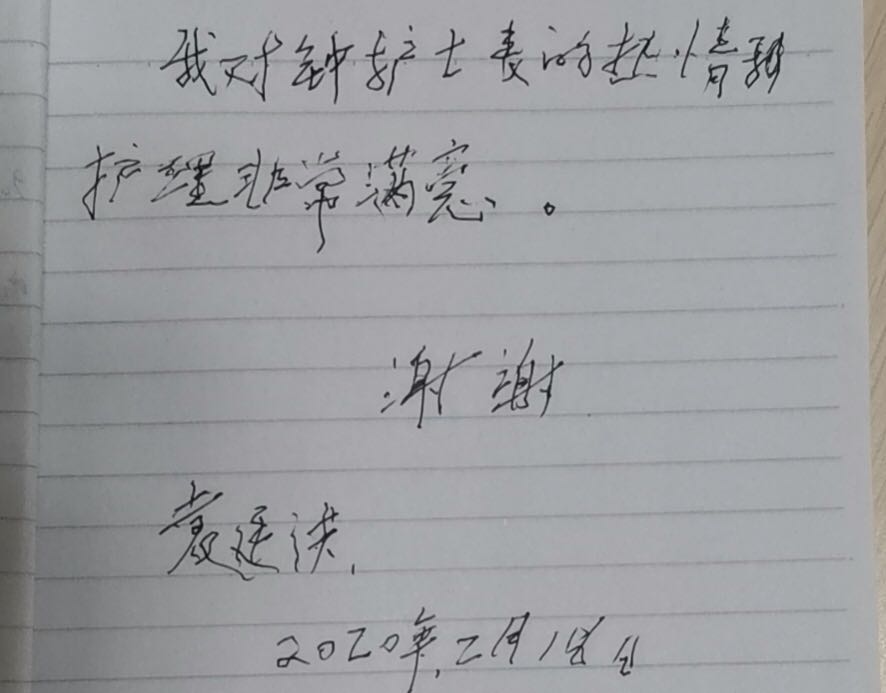 我对钟护士长的热情和
护理非常满意。
谢谢
袁廷洪.
2020年.二月18日